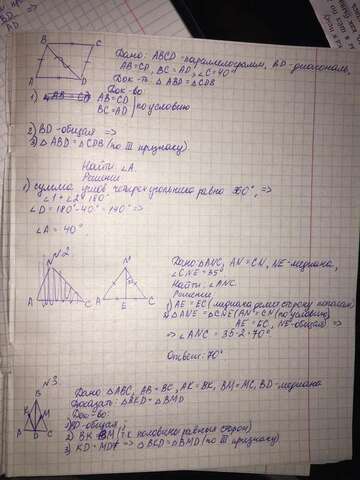 Дано: ABCD - параллелограмм, BD - диагональ,
AB=CD, BC=AD, ∠C=40°
Док-ть: △ABD = △CDB
Док-во:
1) AB=CD
BC=AD по условию
2) BD - общая =>
3) △ABD = △CDB (по III признаку)
Найти: ∠A.
Решение
1) сумма углов четырехугольника равно 360°, =>
∠1+∠2=180°
∠D=180°-40°=140° =>
∠A=40°
№2
Дано: △ANC, AN=CN, NE-медиана,
∠CNE=35°
Найти: ∠ANC.
Решение
1) AE=EC (медиана делит сторону пополам)
2) △ANE=△CNE (AN=CN (по условию)
AE=EC, NE-общая) =>
=> ∠ANC=35·2=70°
Ответ: 70°
№3.
Дано: △ABC, AB=BC, AK=BK, BM=MC, BD-медиана
Доказать: △BKD=△BMD
Док-во:
1) BD-общая
2) BK=BM (т.к половины равных сторон)
3) KD=MD => △BKD=△BMD (по III признаку)